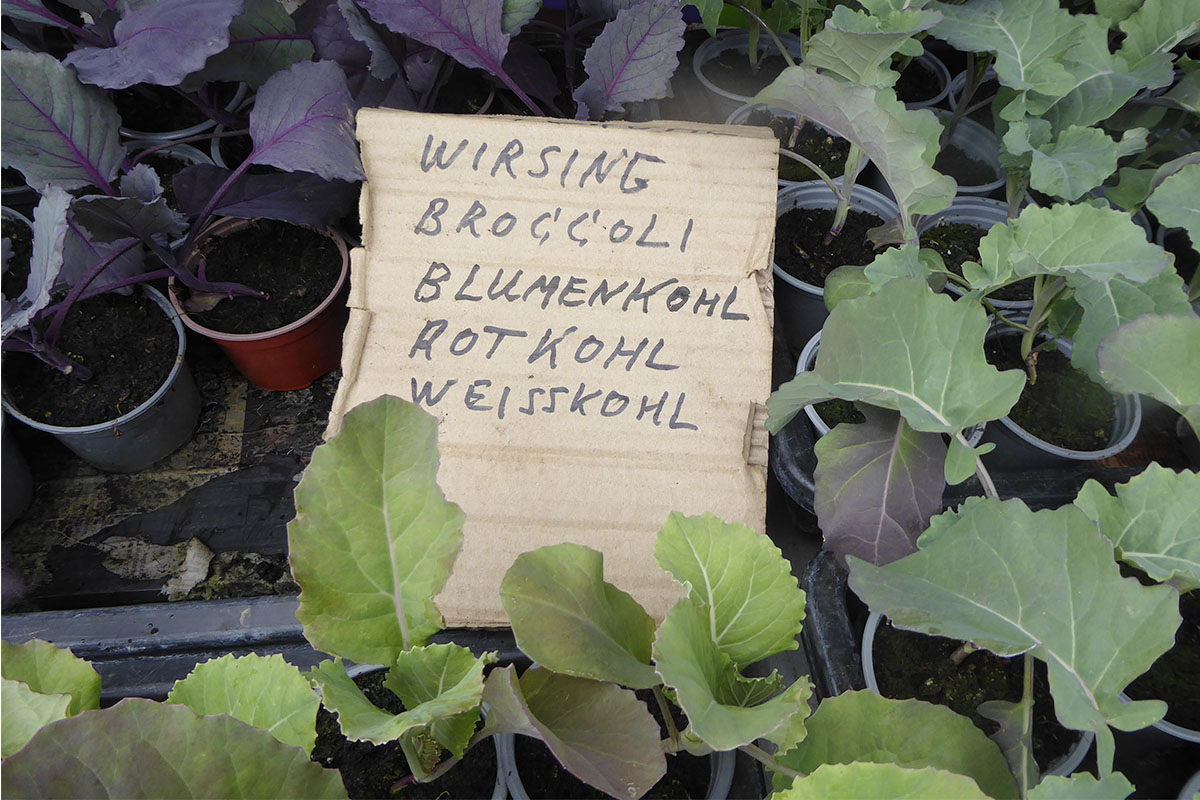 WIRSING
BROCCOLI
BLUMENKOHL
ROTKOHL
WEISSKOHL